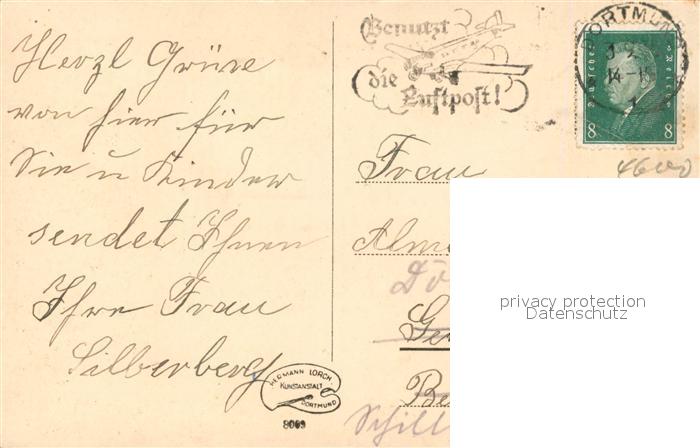 Herzl Grüße
von hier für
Sie u Kinder
sendet Ihnen
Ihre Frau
Silberberg
Benutzt
die
Luftpost!
DORTMUND
14-15
1
Deutsches Reich
8 8
4600
Frau
Alme
Dö
Ge
Be
Schill
privacy protection
Datenschutz
HERMANN LORCH
KUNSTANSTALT
DORTMUND
8009